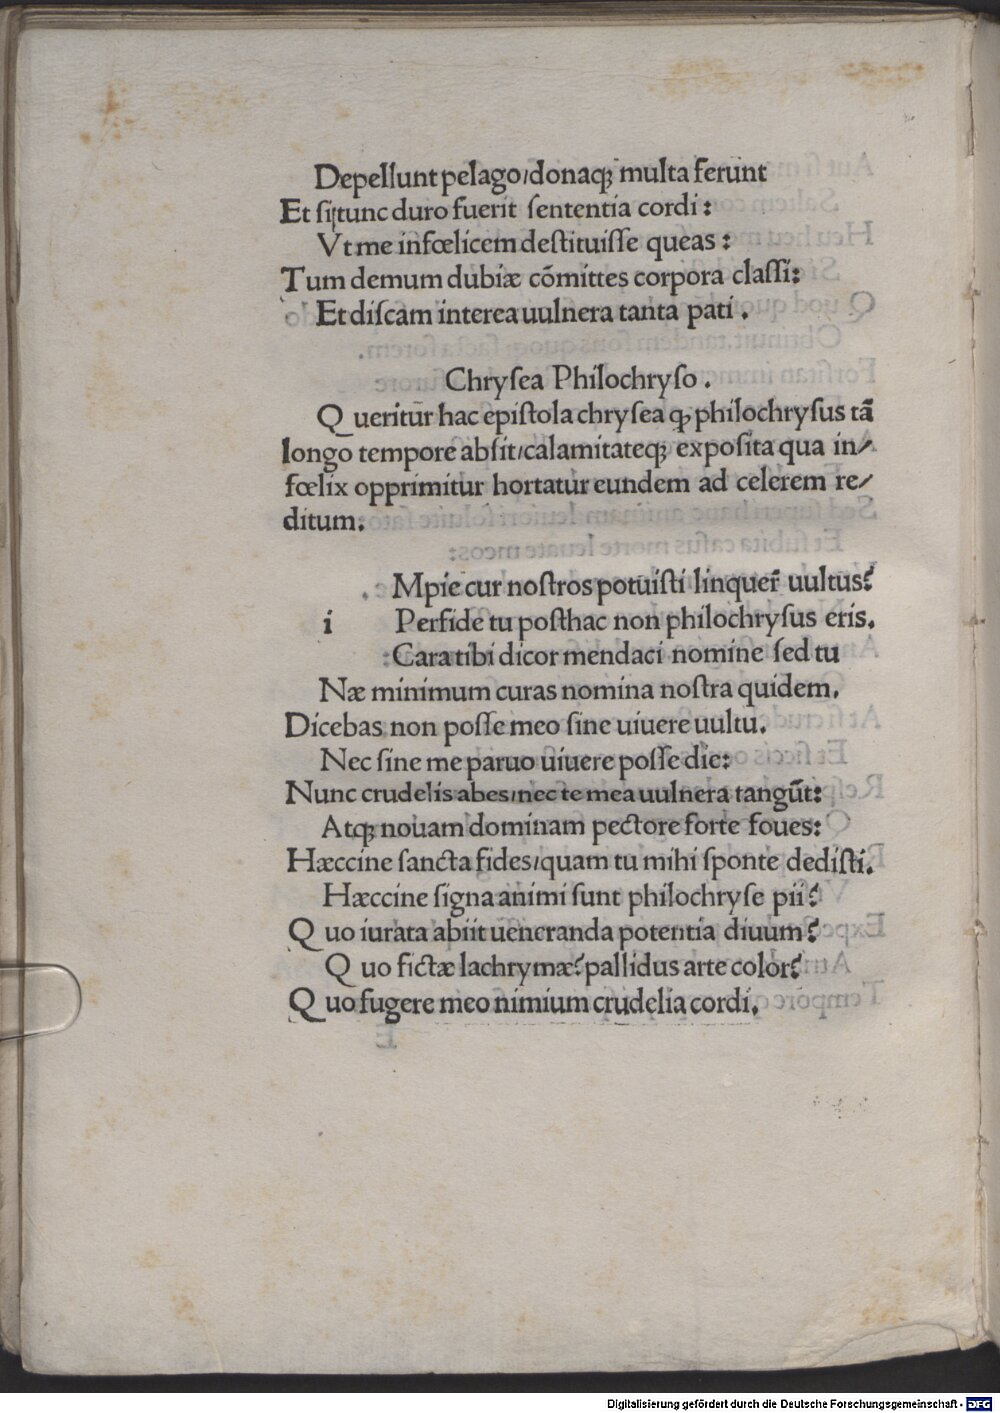 Depellunt pelago/donaqȝ multa ferunt
Et si tunc duro fuerit sententia cordi:
Vt me infœlicem destituisse queas:
Tum demum dubiæ cõmittes corpora classi:
Et discam interea uulnera tanta pati.
Chrysea Philochryso.
Queritur hac epistola chrysea ꝙ philochrysus tã
longo tempore absit/calamitateqȝ exposita qua in/
fœlix opprimitur hortatur eundem ad celerem re/
ditum.
Mpie cur nostros potuisti linquer̃ uultus?
i Perfide tu posthac non philochrysus eris.
Cara tibi dicor mendaci nomine sed tu
Næ minimum curas nomina nostra quidem.
Dicebas non posse meo sine uiuere uultu.
Nec sine me paruo uiuere posse die:
Nunc crudelis abes/nec te mea uulnera tangũt:
Atqȝ nouam dominam pectore forte foues:
Hæccine sancta fides/quam tu mihi sponte dedisti.
Hæccine signa animi sunt philochryse pii?
Quo iurata abiit ueneranda potentia diuum?
Quo fictæ lachrymæ? pallidus arte color?
Quo fugere meo nimium crudelia cordi.
Digitalisierung gefördert durch die Deutsche Forschungsgemeinschaft - DFG